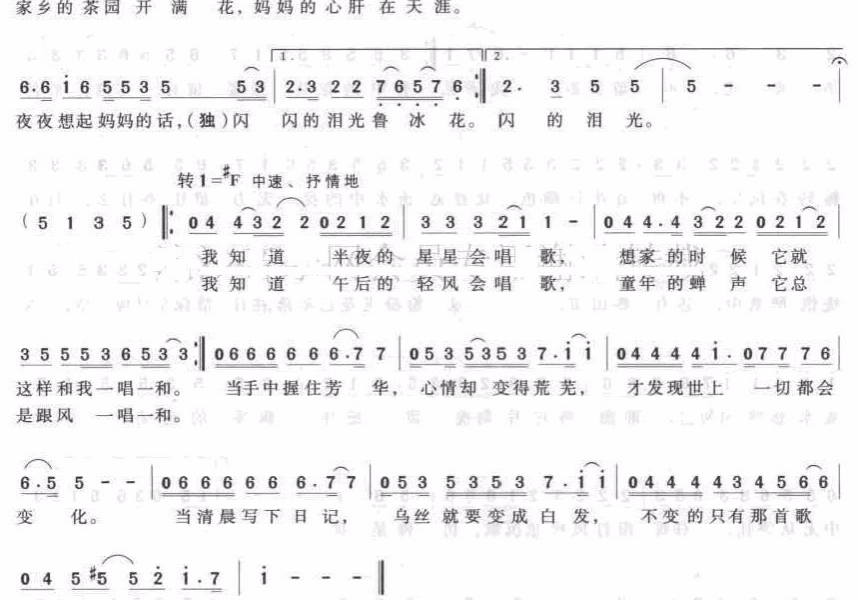 家乡的茶园开满花，妈妈的心肝在天涯。
1. 2.
6·6 i6 553 5 53 | 2·3 22 76576 :‖ 2· 3 5 5 | 5 - - -
夜夜想起妈妈的话，（独）闪 闪的泪光鲁冰花。闪 的 泪 光。
转1=#F 中速、抒情地
（5 1 3 5）‖: 04 432 20212 | 3 3 3 21 1 - | 04 4·4 322 0212
我知道 半夜的 星星会唱 歌， 想家的时 候 它就
我知道 午后的 轻风会唱 歌， 童年的蝉 声 它总
35553653 3 :‖ 0666 6 6 6·7 7 | 0535353 5 7·i i | 04444 i·07776
这样和我一唱一和。 当手中握住芳 华， 心情却变得荒芜， 才发现世上 一切都会
是跟风 一唱一和。
6·5 5 - - | 0666 666 6·7 7 | 053 5353 7·i i | 0444443 4566
变 化。 当清晨写下日记， 乌丝就要变成白发， 不变的只有那首歌
04 5#5 52 i·7 | i - - - ‖